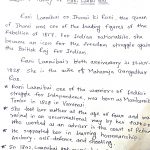 Rani Laxmibai
Rani Laxmibai or Jhansi ki Rani the queen
of Jhansi was one of the leading figures of the
Rebellion of 1857. For Indian nationalists she
became an icon for the freedom struggle against
the British Raj for Indians.
Rani Laxmibai's birth anniversary is
1828. She is the wife of Maharaja Gangadhar
Rao.
Rani Laxmibai one of the warriors of India's
struggle for Independence, was born as Manikarnika
Tambe in 1828 in Varanasi.
She lost her mother at the age of four and was
raised in an unconventional way by her father
who worked as an advisor in the court of Peshwa
She supported her in learning horsemanship
archery, self-defence, and shooting
In 1842, Laxmibai got